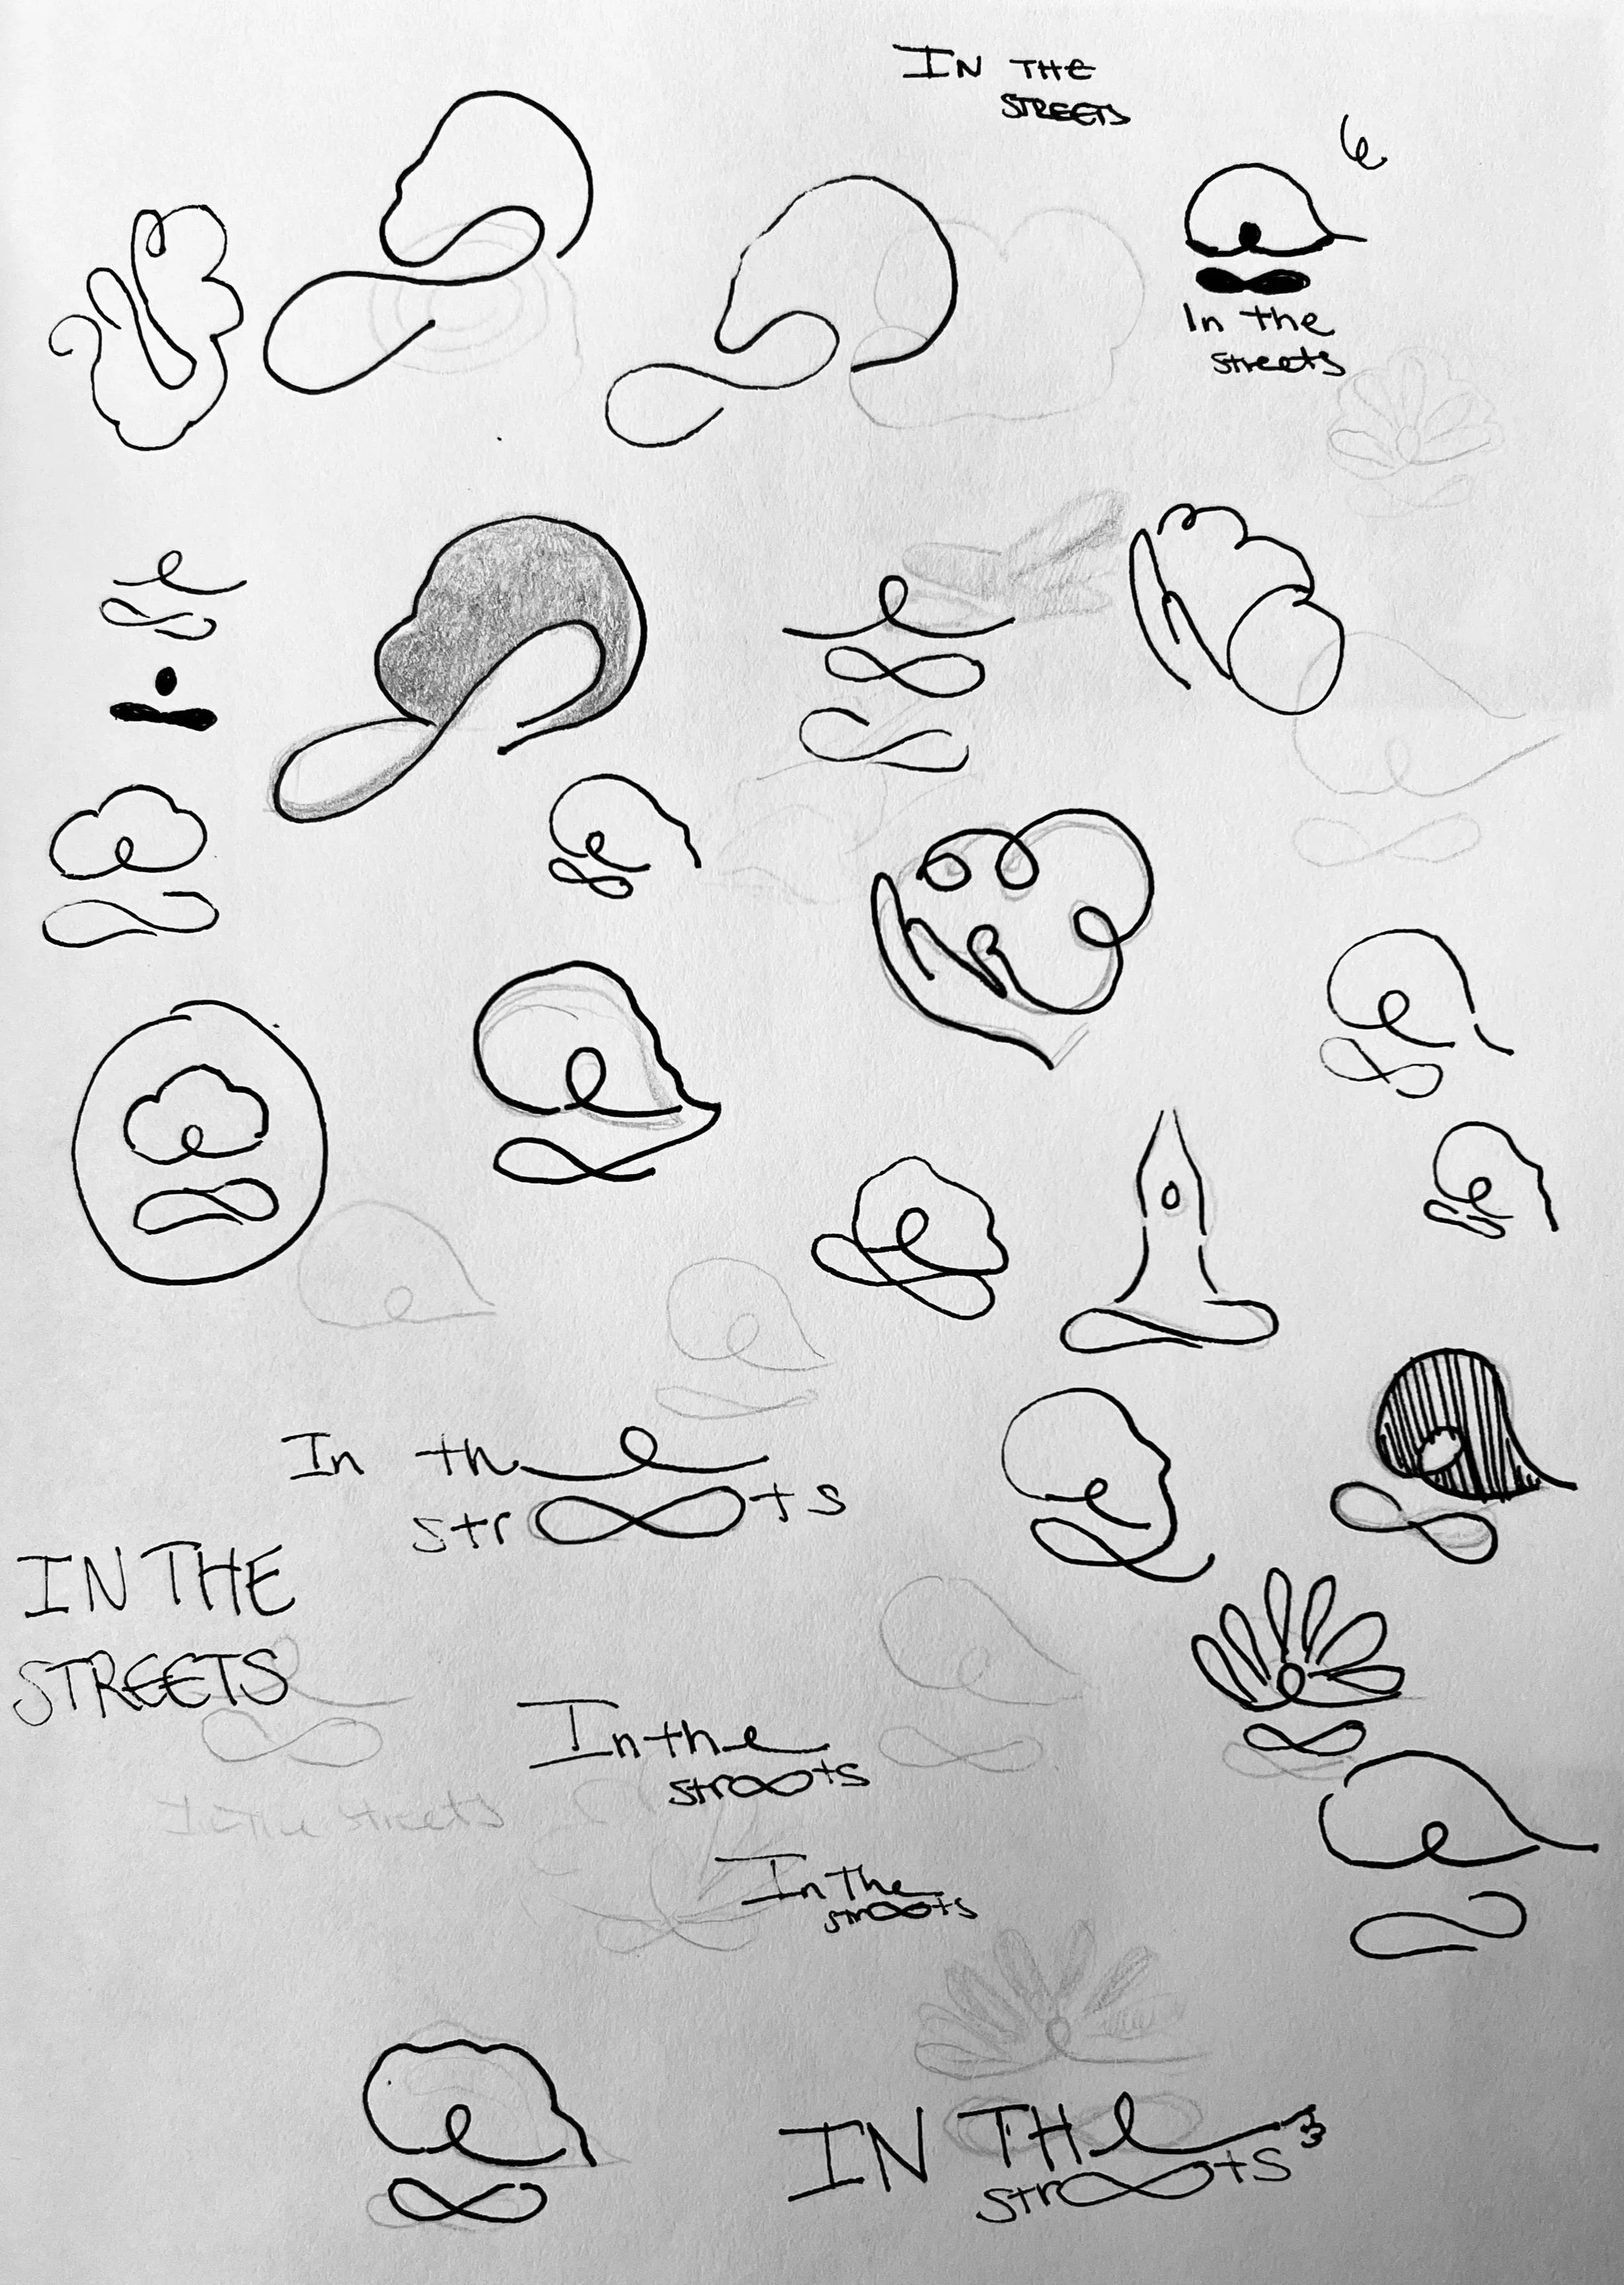 IN THE
STREETS
In the
streets
In the
str∞ts
IN THE
STREETS
In the
str∞ts
In the streets
In The
str∞ts
IN THe
str∞ts